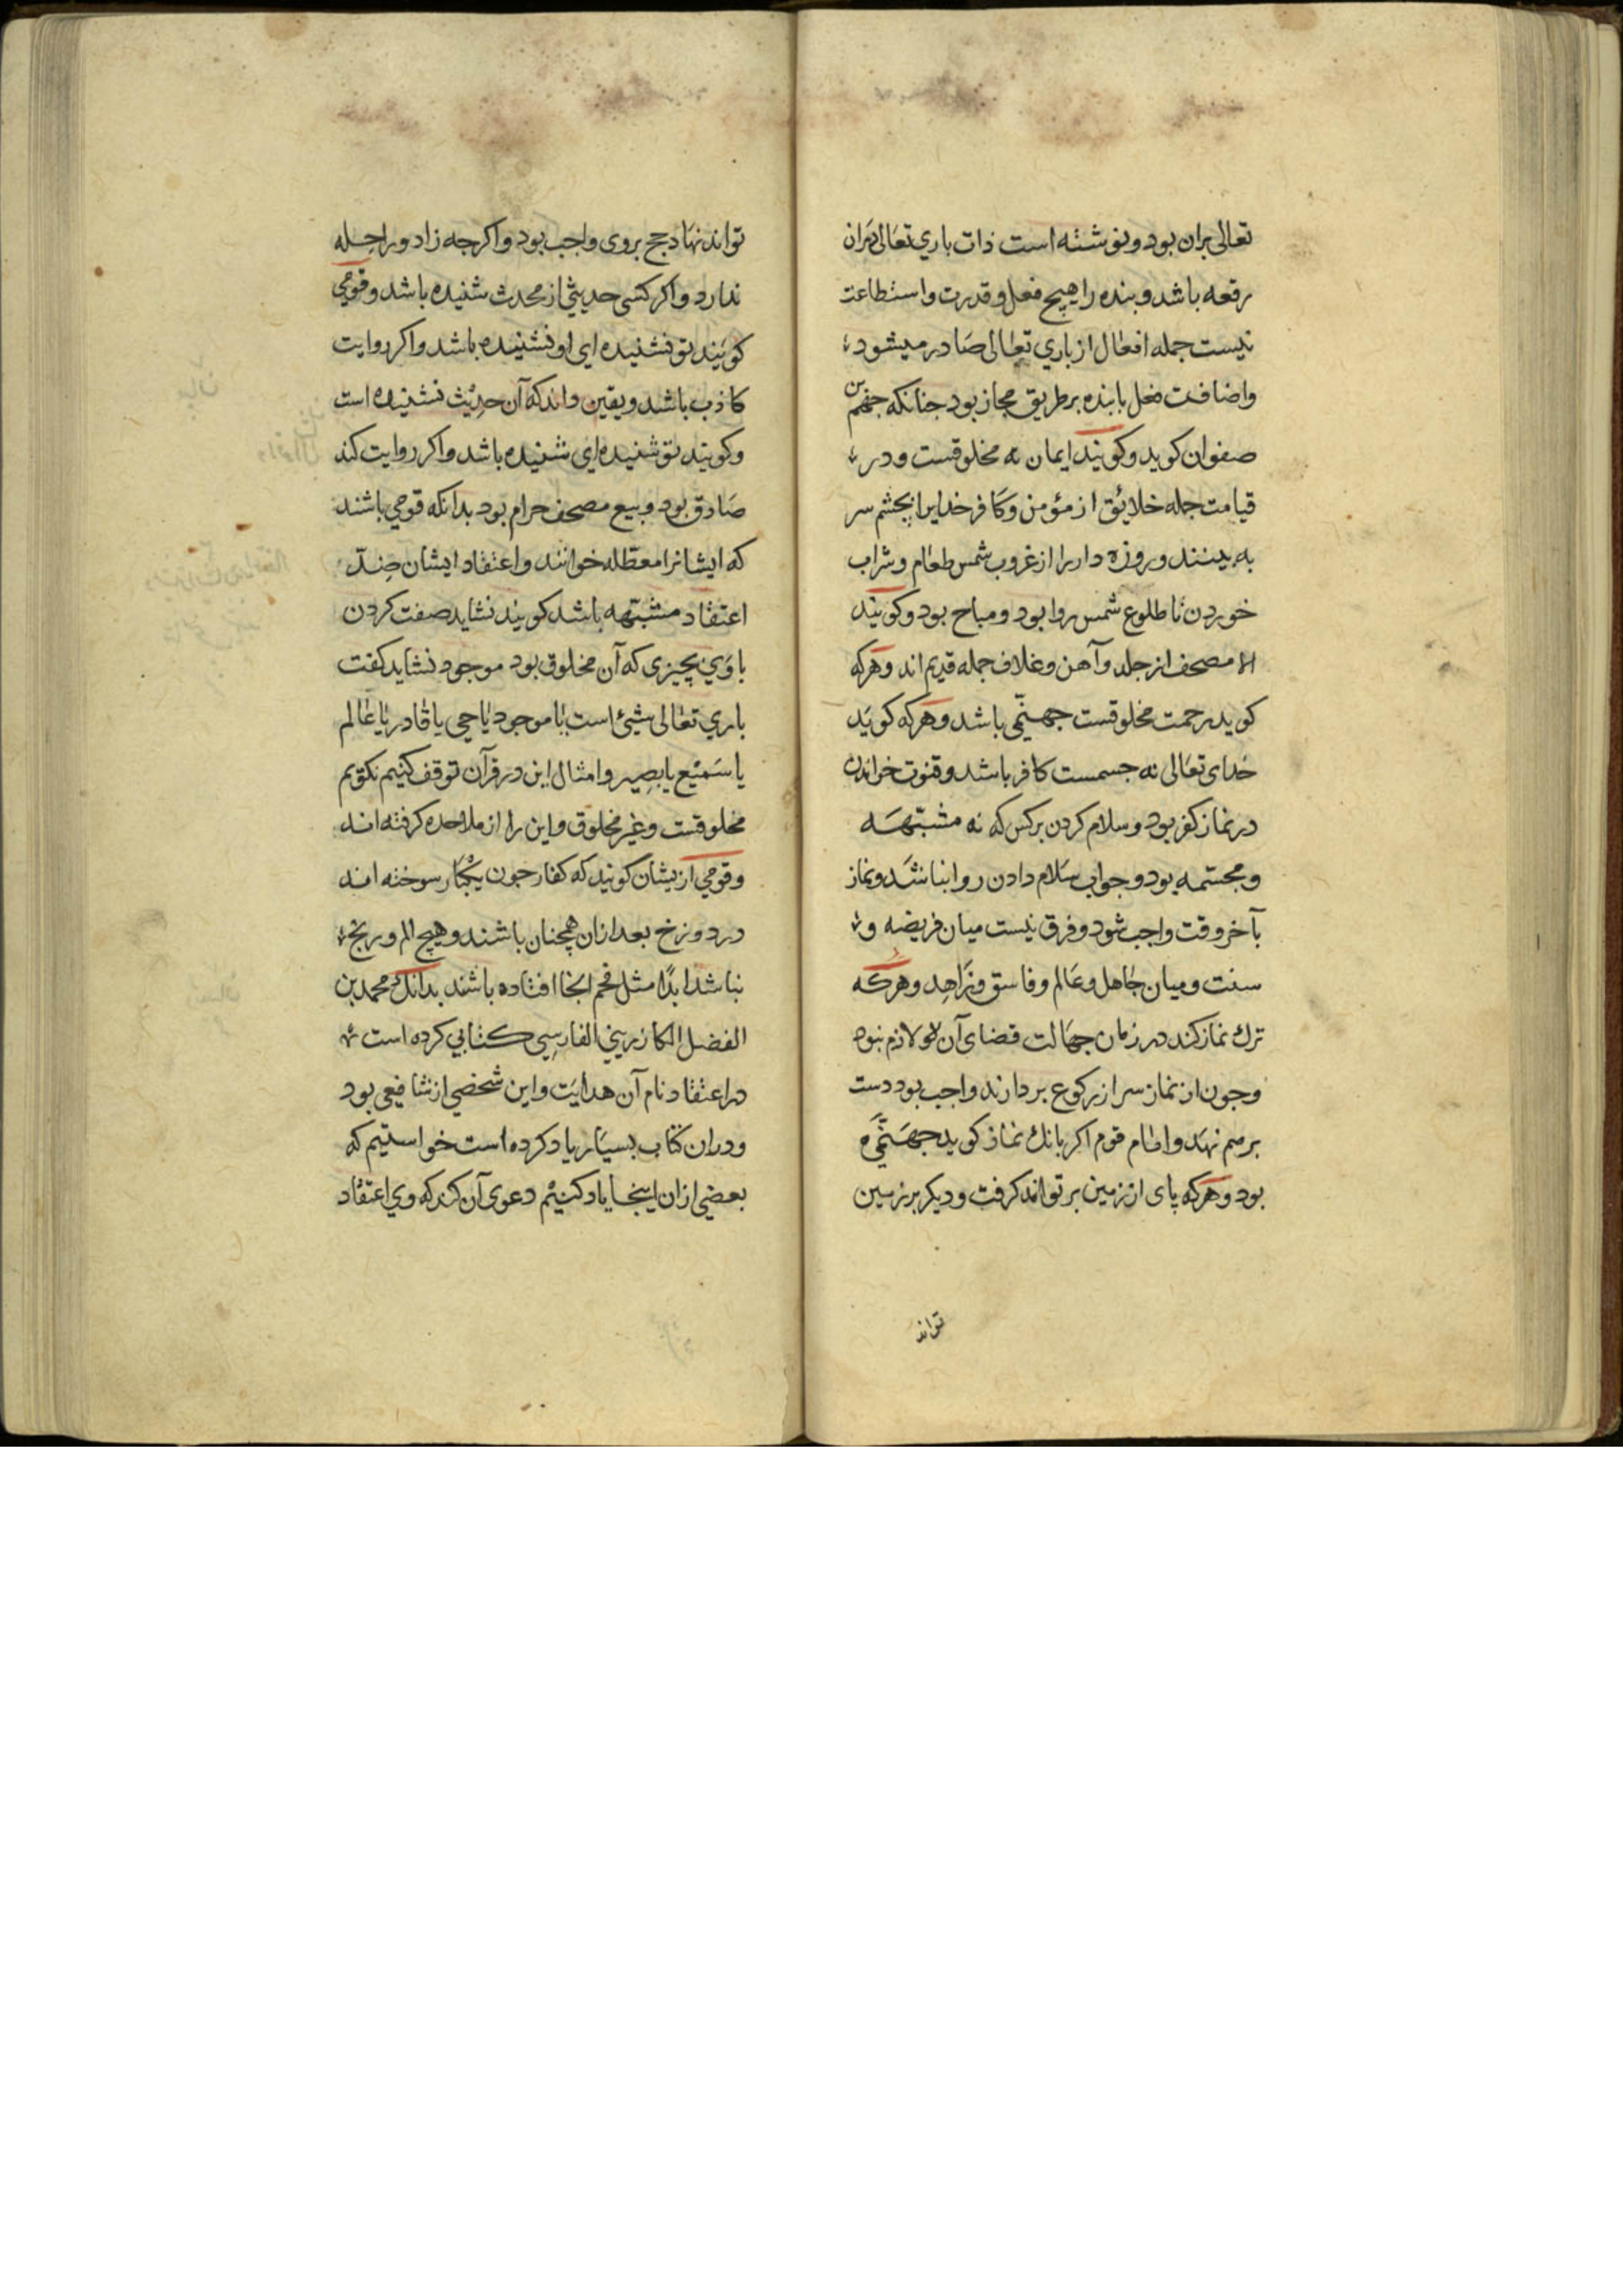 تعالی بران بود و نوشته است ذات باري تعالی دران
رقعه باشد و بنده را هیچ فعل و قدرت و استطاعت
نیست جمله افعال از باري تعالی صادر میشود
و اضافت فعل با بنده بر طریق مجاز بود جنانکه جهم بن
صفوان کوید و کویند ایمان نه مخلوقست و در
قیامت جمله خلائق از مؤمن و کافر خدایرا بچشم سر
به بینند و روزه دار را از غروب شمس طعام و شراب
خوردن تا طلوع شمس روا بود و مباح بود و کویند
مصحف از جلد و آهن و غلاف جمله قدیم اند و هرکه
کوید رحمت مخلوقست جهنّمی باشد و هرکه کوید
خدای تعالی نه جسمست کافر باشد و قنوت خواندن
در نماز کفر بود و سلام کردن بر کس که نه مشبّهه
و مجسّمه بود و جواب سلام دادن روا نباشد و نماز
بآخر وقت واجب شود و فرق نیست میان فریضه و
سنت و میان جاهل و عالم و فاسق و زاهد و هرکه
ترك نماز کند در زمان جهالت قضای آن لازم نبود
و جون از نماز سر از رکوع بردارند واجب بود دست
برهم نهد و امام قوم اکر بانك نماز کوید جهنّمی
بود و هرکه پای از زمین بر تواند کرفت و دیکر بر زمین
تواند
تواند نهاد حج بروی واجب بود و اکرجه زاد و راحله
ندارد و اکر کسی حدیثی از محدث شنیده باشد و قومي
کویند تو نشنیده ای او نشنیده باشد و اکر روایت
کاذب باشد و یقین داند که آن حدیث نشنیده است
و کویند تو شنیده ای شنیده باشد و اکر روایت کند
صادق بود و بیع مصحف حرام بود بدانکه قومي باشند
که ایشانرا معطّله خوانند و اعتقاد ایشان ضدّ
اعتقاد مشبّهه باشد کویند نشاید صفت کردن
باري بچیزی که آن مخلوق بود موجود نشاید کفت
باري تعالی شیئ است یا موجود یا حي یا قادر یا عالم
یا سمیع یا بصیر و امثال این در قرآن توقف کنیم نکویم
مخلوقست و غیر مخلوق و این را از ملاحده کرفته اند
و قومي ازیشان کویند که کفار جون یکبار سوخته اند
در دوزخ بعد ازان همچنان باشند و هیچ الم و رنج
نباشد ابدًا مثل فحم انجا افتاده باشند بدانك محمد بن
الفضل الکازریني الفارسي کتابي کرده است
در اعتقاد نام آن هدایت و این شخصي از شافعي بود
و دران کتاب بسیار یاد کرده است خواستیم که
بعضي ازان اینجا یاد کنیم دعوی آن کند که وي اعتقاد